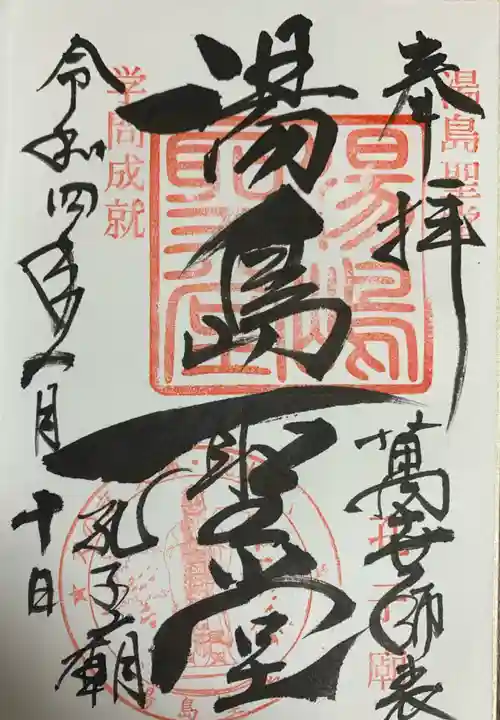 奉拝
湯島聖堂
萬世師表
孔子廟
湯島聖堂
湯嶋聖堂
孔子廟
学問成就
令和四年八月十日